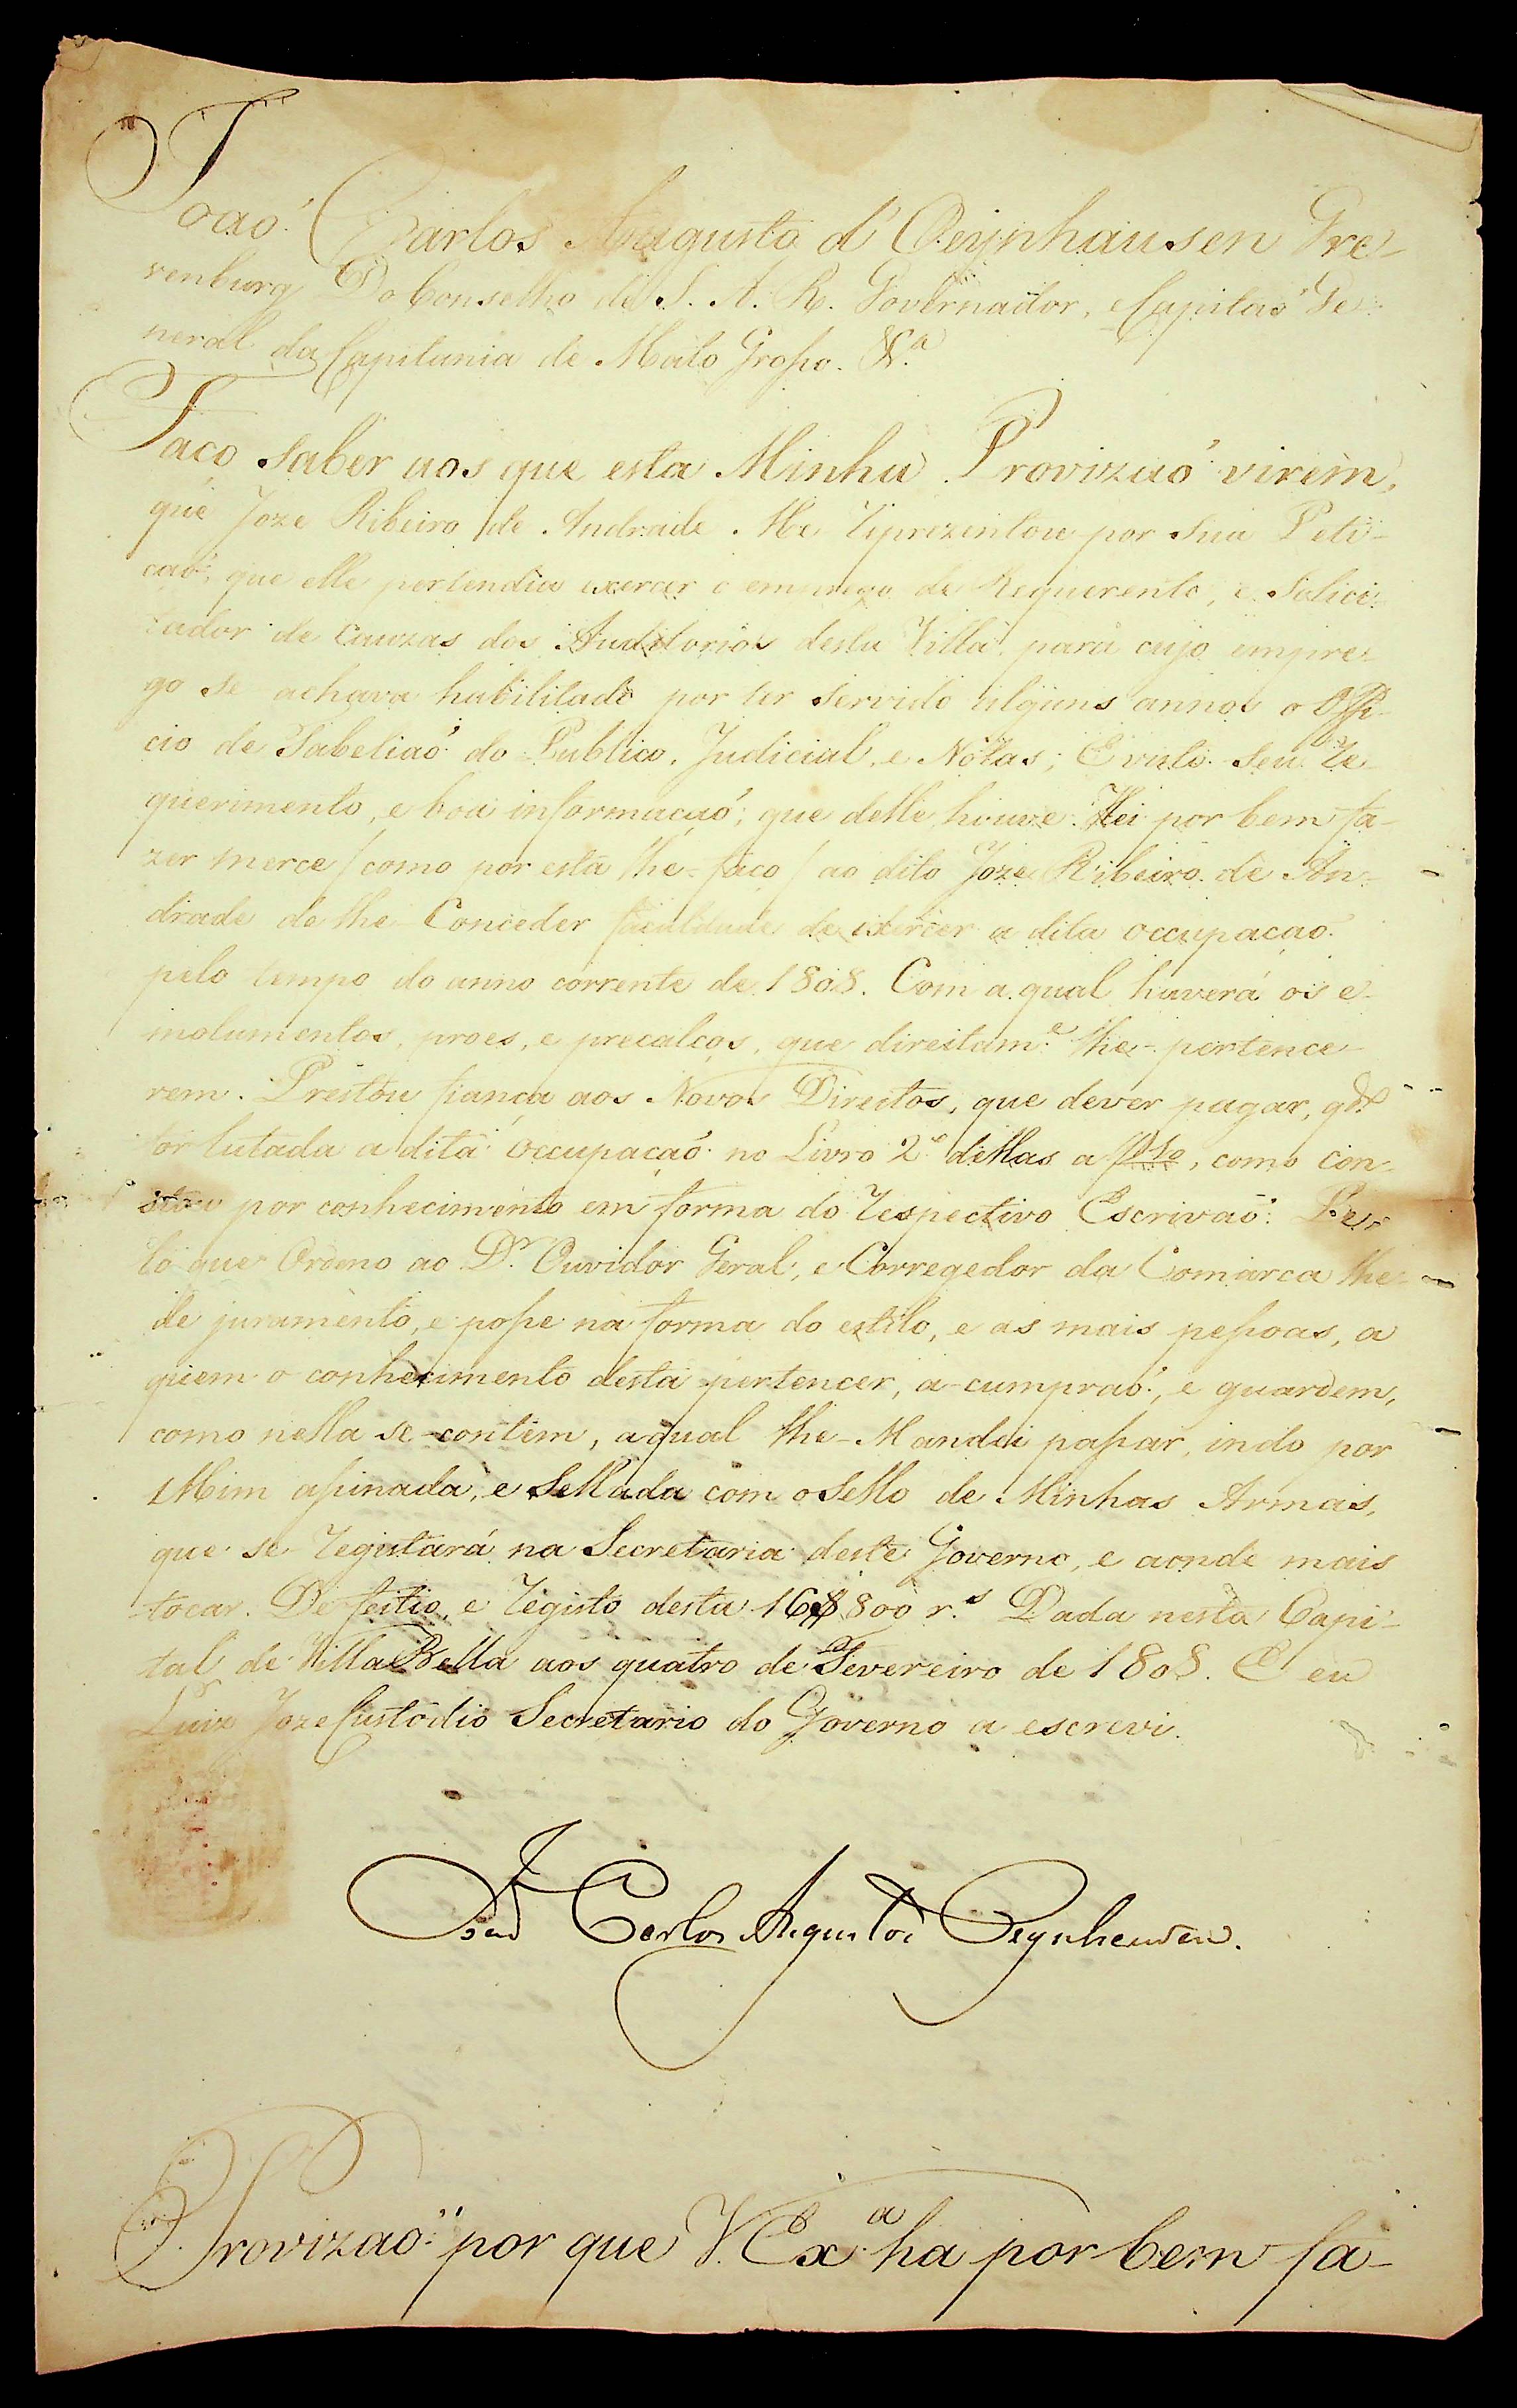 João Carlos Augusto d' Oeynhausen Gre-
venburg Do Conselho de S. A. R. Governador, e Capitaõ Ge-
neral da Capitania de Mato Grosso. &.ª
Faço saber aos que esta Minha Provizaõ virem,
que Joze Ribeiro de Andrade Me reprezentou por sua Peti-
caõ, que elle pertendia exercer o emprego de Requerente, e Solici-
tador de Cauzas dos Auditorios desta Villa para cujo empre-
go se achava habilitado por ter servido alguns annos o Offi-
cio de Tabeliaõ do Publico, Judicial, e Notas; E visto seu re-
querimento, e boa informaçaõ, que delle houve: Hei por bem fa-
zer merce (como por esta lhe-faço) ao dito Joze Ribeiro de An-
drade de lhe Conceder faculdade de exercer a dita occupaçaõ
pelo tempo do anno corrente de 1808. Com a qual haverá os e-
molumentos, proes, e precalços, que direitam.e lhe-pertence-
rem. Prestou fiança aos Novos Direitos, que dever pagar, qdo
for lutada a dita occupaçaõ no Livro 2º dellas a, como con-
stou por conhecimento em forma do respectivo Escrivaõ: Pe-
lo que Ordeno ao D.r Ouvidor Geral, e Corregedor da Comarca lhe-
de juramento, e posse na forma do estilo, e as mais pessoas, a
quem o conhecimento desta pertencer, a-cumpraõ, e guardem,
como nella se-contem, a qual lhe-Mandei passar, indo por
Mim assinada, e sellada com o sello de Minhas Armas,
que se registará na Secretaria deste Governo, e aonde mais
tocar. De feitio, e registo desta 16$800 r.s Dada nesta Capi-
tal de Villa Bella aos quatro de Fevereiro de 1808. E eu
Luiz Joze Custodio Secretario do Governo a escrevi.
João Carlos Augusto d' Oeynhausen.
Provizaõ por que V. Ex.ª ha por bem fa-